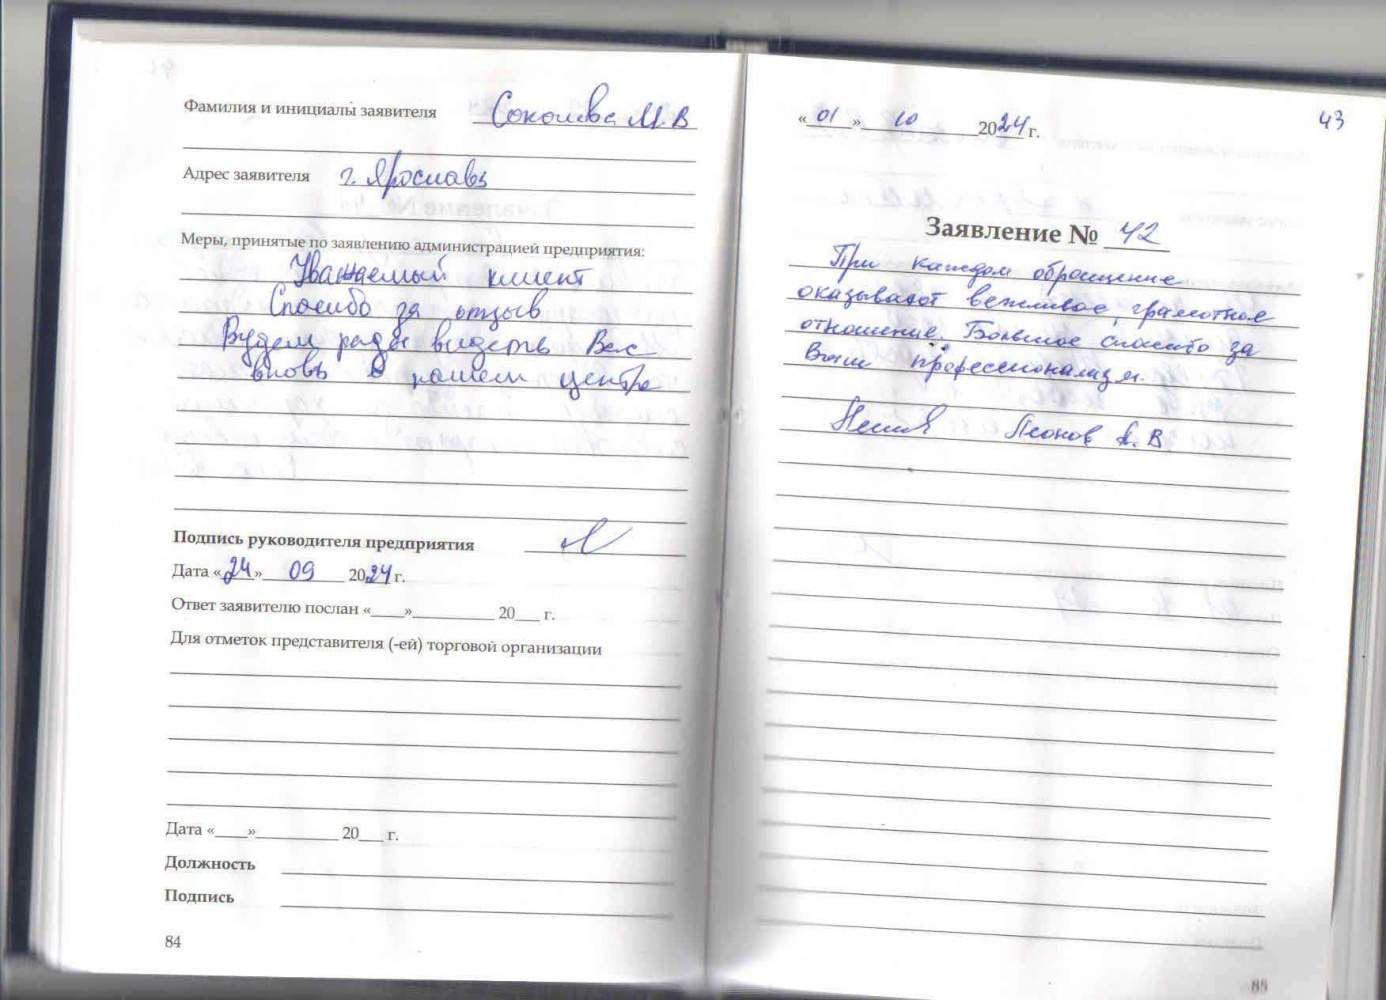 Фамилия и инициалы заявителя Соколова М.В
Адрес заявителя г. Ярославль
Меры, принятые по заявлению администрацией предприятия:
Уважаемый клиент
Спасибо за отзыв
Будем рады видеть Вас
вновь в нашем центре
Подпись руководителя предприятия
Дата «24» 09 2024 г.
Ответ заявителю послан «____»__________ 20___ г.
Для отметок представителя (-ей) торговой организации
Дата «____»__________ 20___ г.
Должность
Подпись
84
«01» 10 2024 г.
43
Заявление № 42
При каждом обращение
оказывают вежливое, грамотное
отношение. Большое спасибо за
Ваш профессионализм.
Леонов А. В
85